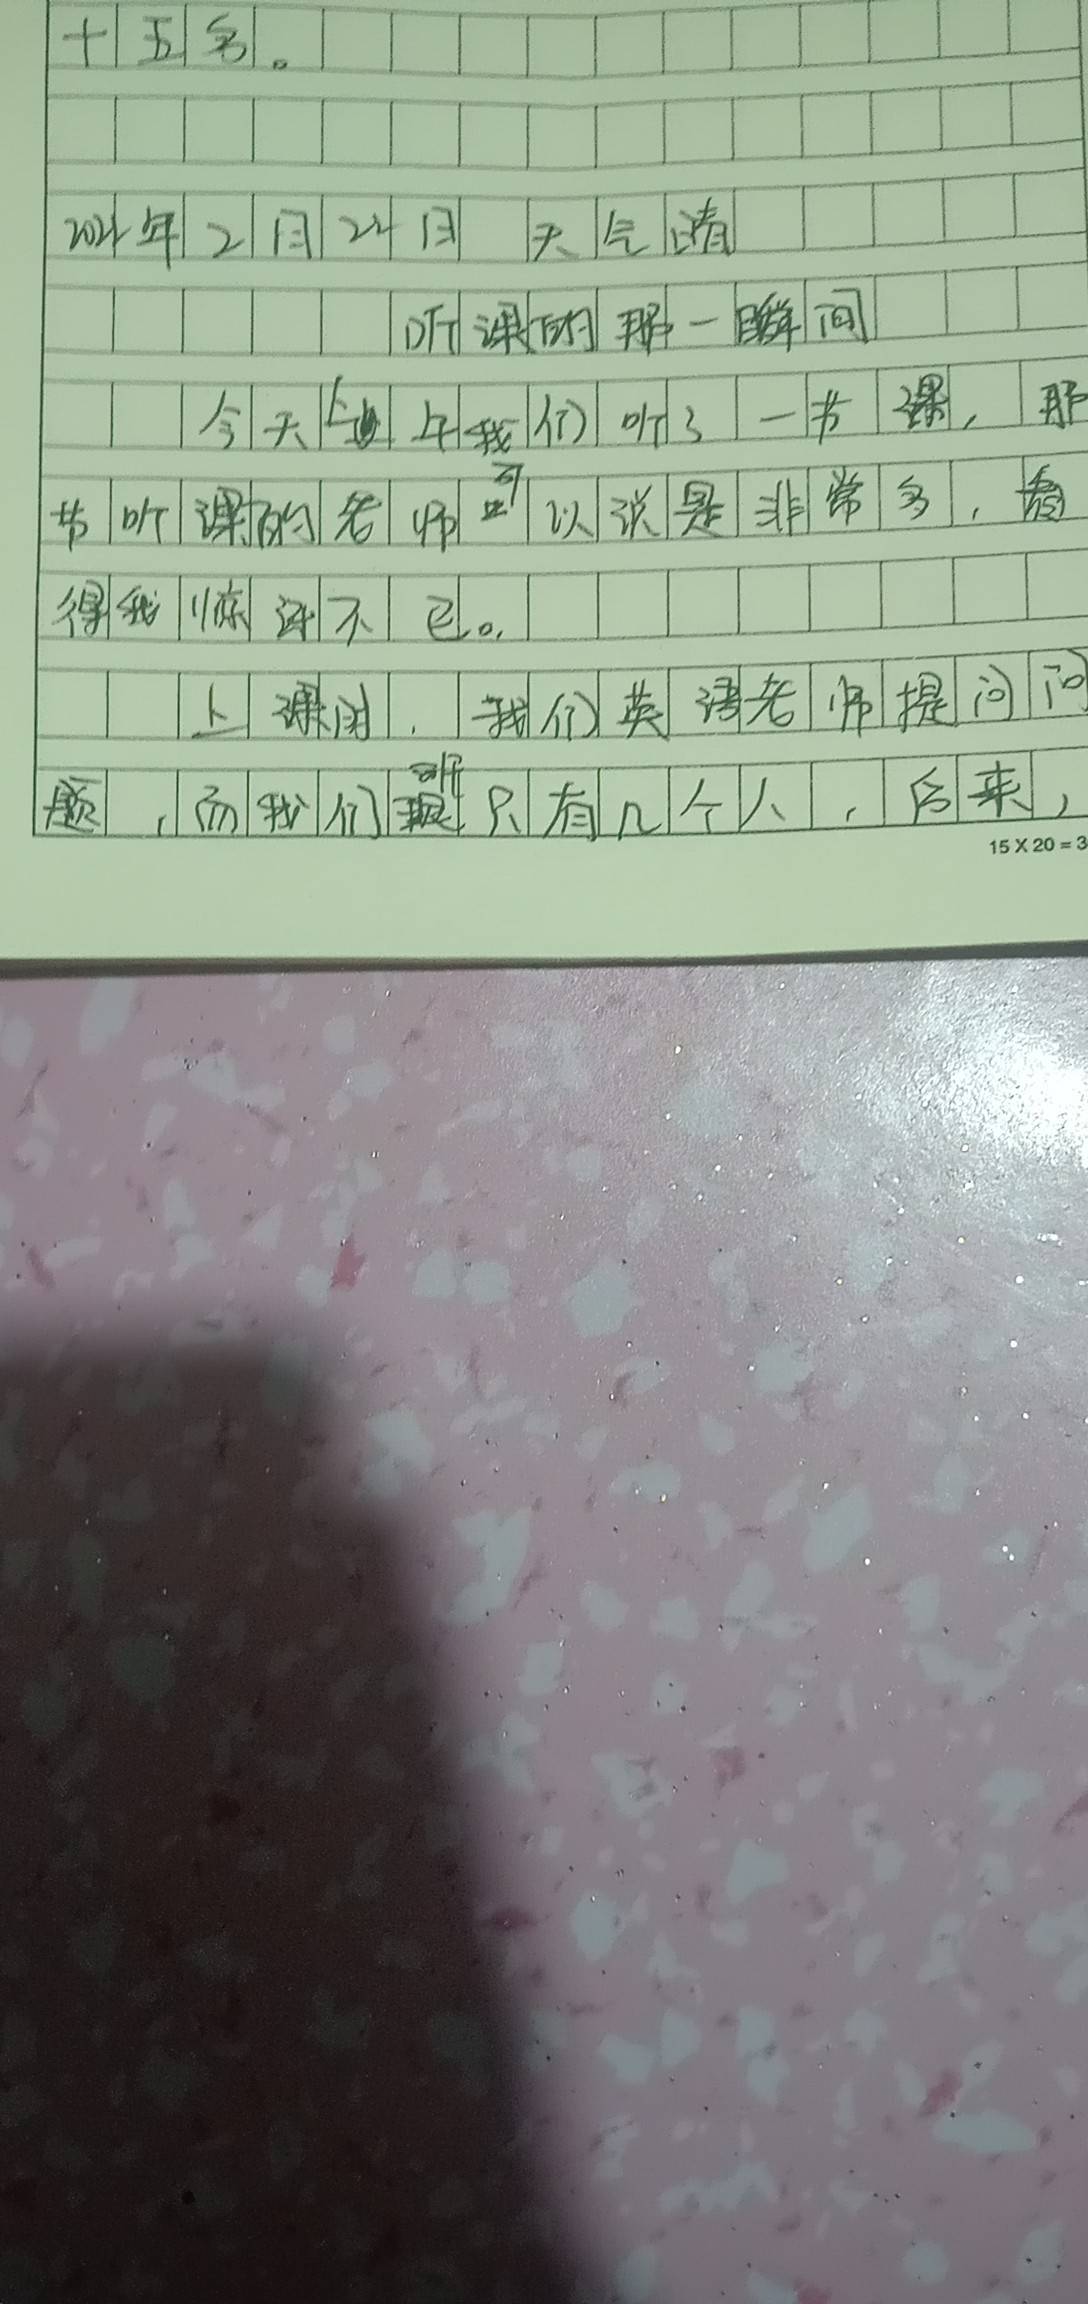 十五名。
年2月24日 天气晴
听课的那一瞬间
今天上午我们听了一节课，那
节听课的老师可以说是非常多，看
得我惊讶不已。
上课时，我们英语老师提问问
题，而我们班只有几个人，后来，
15 X 20 = 3